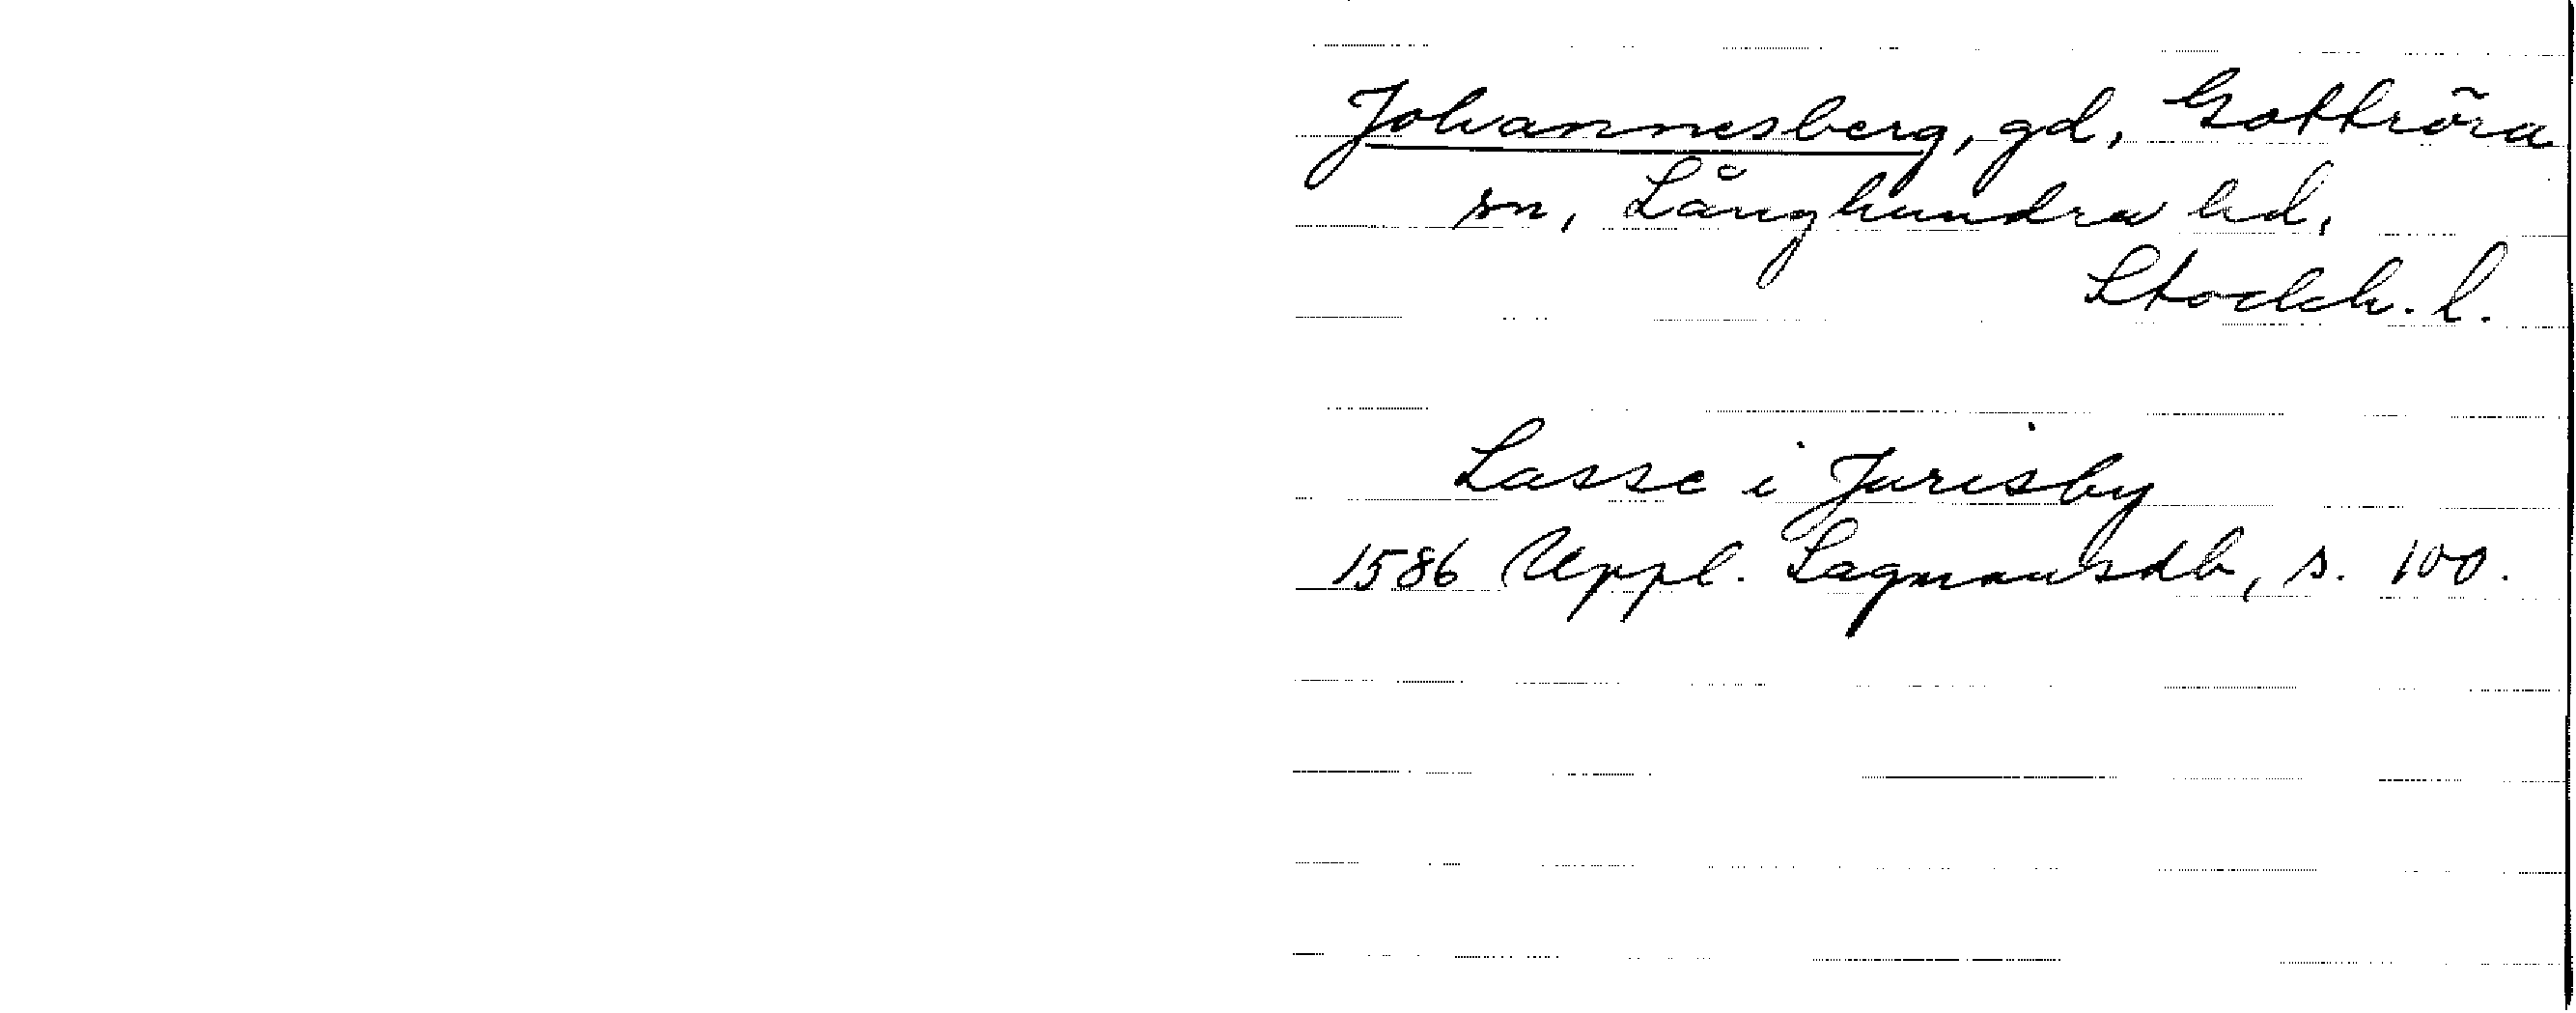 Johannesberg, gd, Gottröra
sn, Långhundra hd,
Stockh. l.
Lasse i Jurisby
1586 Uppl. Lagmansdb, s. 100.